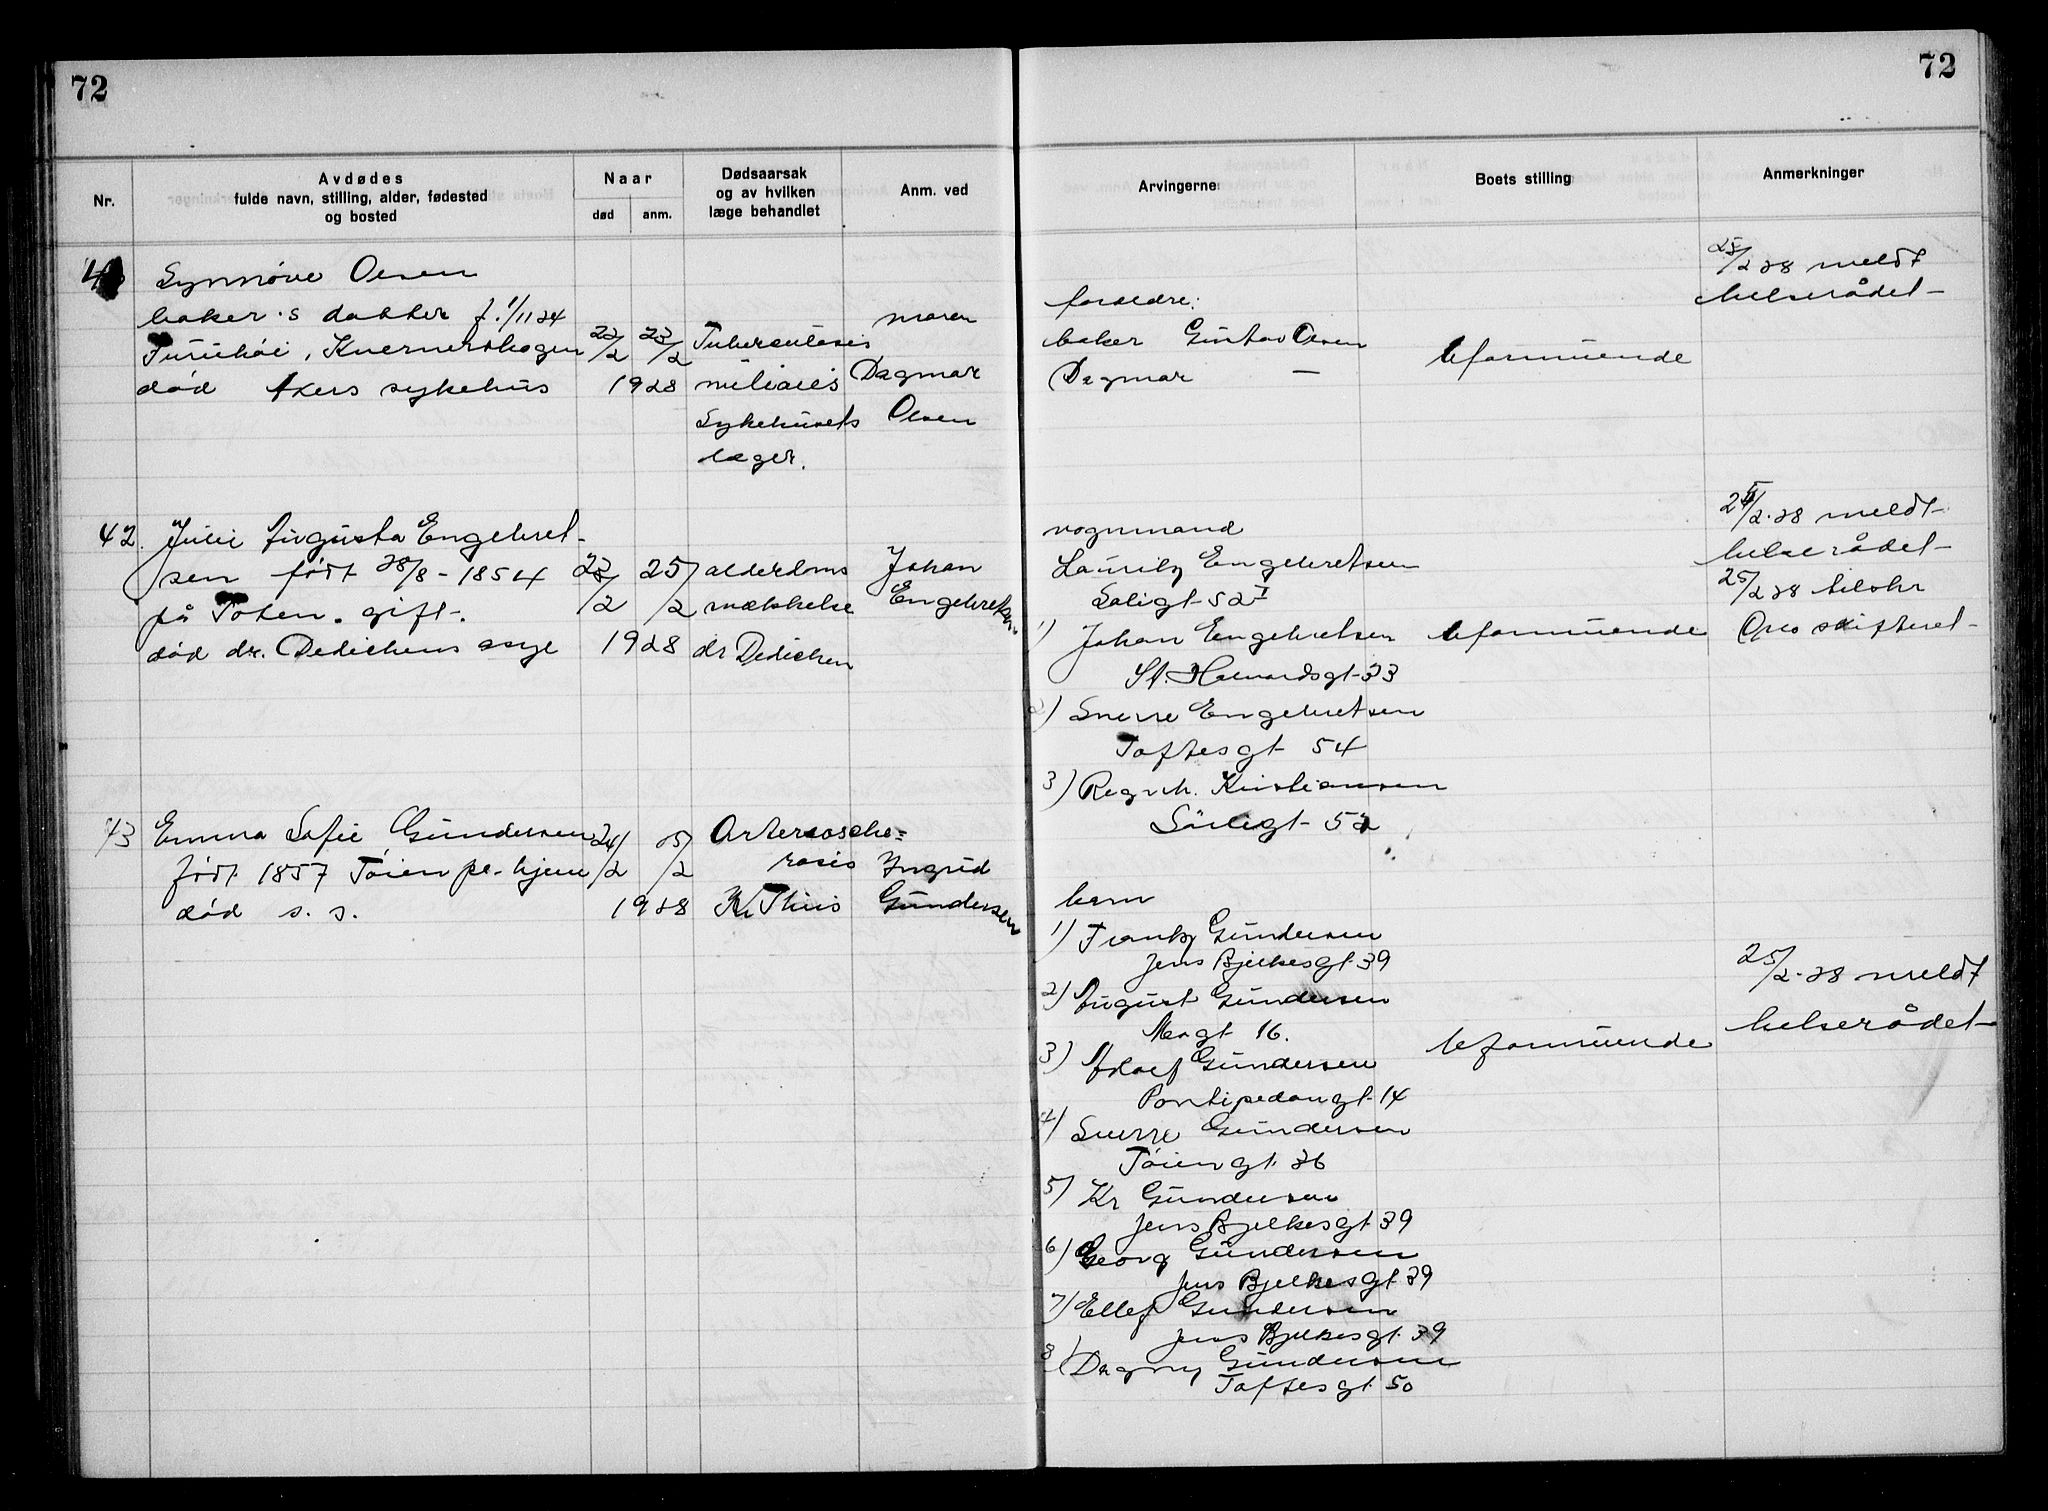 72
72
Nr.
Avdødes
fulde navn, stilling, alder, fødested
og bosted
Naar
død
anm.
Dødsaarsak
og av hvilken
læge behandlet
Anm. ved
Arvingerne
Boets stilling
Anmerkninger
Synnøve Olsen
baker's datter f. 1/11 24
Furuhøi, Kvernerskogen
død Akers sykehus
22/2 23/2
1928
Tuberculosis
miliaris
Sykehusets
læger.
moren
Dagmar
Olsen
foreldre:
baker Gustav Olsen
Dagmar —
Uformuende
25/2 28 meldt
helserådet
42. Julie Augusta Engebret-
sen født 28/8 - 1854
på Toten. gift.
død dr. Dedichens asyl
23/2 25/2
1928
alderdoms
svækkelse
dr Dedichen
Johan
Engebretsen
vognmand
Lauritz Engebretsen
Sørligt 52 I
1) Johan Engebretsen
St. Halvardsgt 33
2) Sverre Engebretsen
Toftesgt 54
3) Ragnh. Kristiansen
Sørligt 52
Uformuende
25/2.28 meldt
helserådet
25/2 28 tilskr
Oslo skifteret
43 Emma Sofie Gundersen
født 1857 Tøien pl. hjem
død s. s.
24/2 25/2
1928
Arterioscle=
rosis
Kr Thiis
Ingrid
Gundersen
barn
1) Frantz Gundersen
Jens Bjelkesgt 39
2) August Gundersen
16.
3) Adolf Gundersen
Pontipedangt 14
4) Sverre Gundersen
Tøiengt. 26
5) Kr Gundersen
Jens Bjelkesgt 39
6) Georg Gundersen
Jens Bjelkesgt 39
7) Ellef Gundersen
Jens Bjelkesgt. 39
8) Dagny Gundersen
Toftesgt. 50
Uformuende
25/2.28 meldt
helserådet